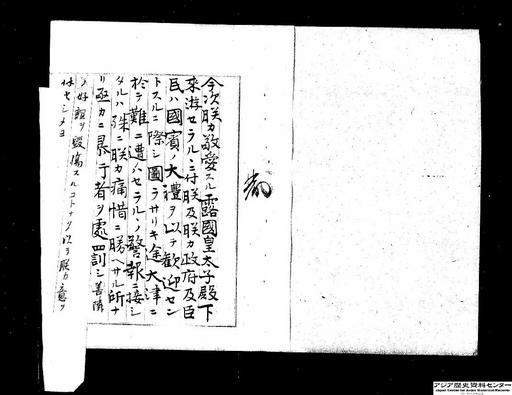 今次朕カ敬愛スル露國皇太子殿下
來游セラルヽニ付朕及朕カ政府及臣
民ハ國賓ノ大禮ヲ以テ歡迎セン
トスルニ際シ圖ラサリキ途大津ニ
於テ難ニ遭ハセラルヽノ警報ニ接シ
タルハ殊ニ朕カ痛惜ニ勝ヘサル所ナ
リ亟カニ暴行者ヲ處罰シ善隣
ノ好誼ヲ毀傷スルコトナク以テ朕カ意ヲ
休セシメヨ
アジア歴史資料センター
Japan Center for Asian Historical Records